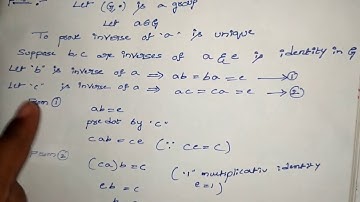 (G, •) is a group
Let a∈G
To prove inverse of "a" is unique
Suppose b,c are inverses of a & e is identity in G
Let "b" is inverse of a ⇒ ab = ba = e → ①
Let "c" is inverse of a ⇒ ac = ca = e → ②
From ①
ab = e
pre dot by "c"
cab = ce (∵ ce = c)
From ②
(ca)b = c ("1" multiplicative identity
eb = c e=1)